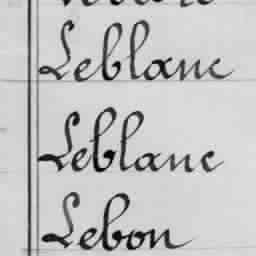 Leblanc
Leblanc
Lebon